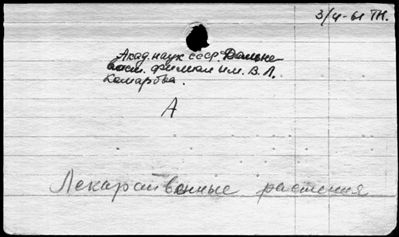 3/IV-61 ТМ.
Акад. наук СССР. Дальне-
вост. филиал им. В. Л.
Комарова.
А
Лекарственные растения